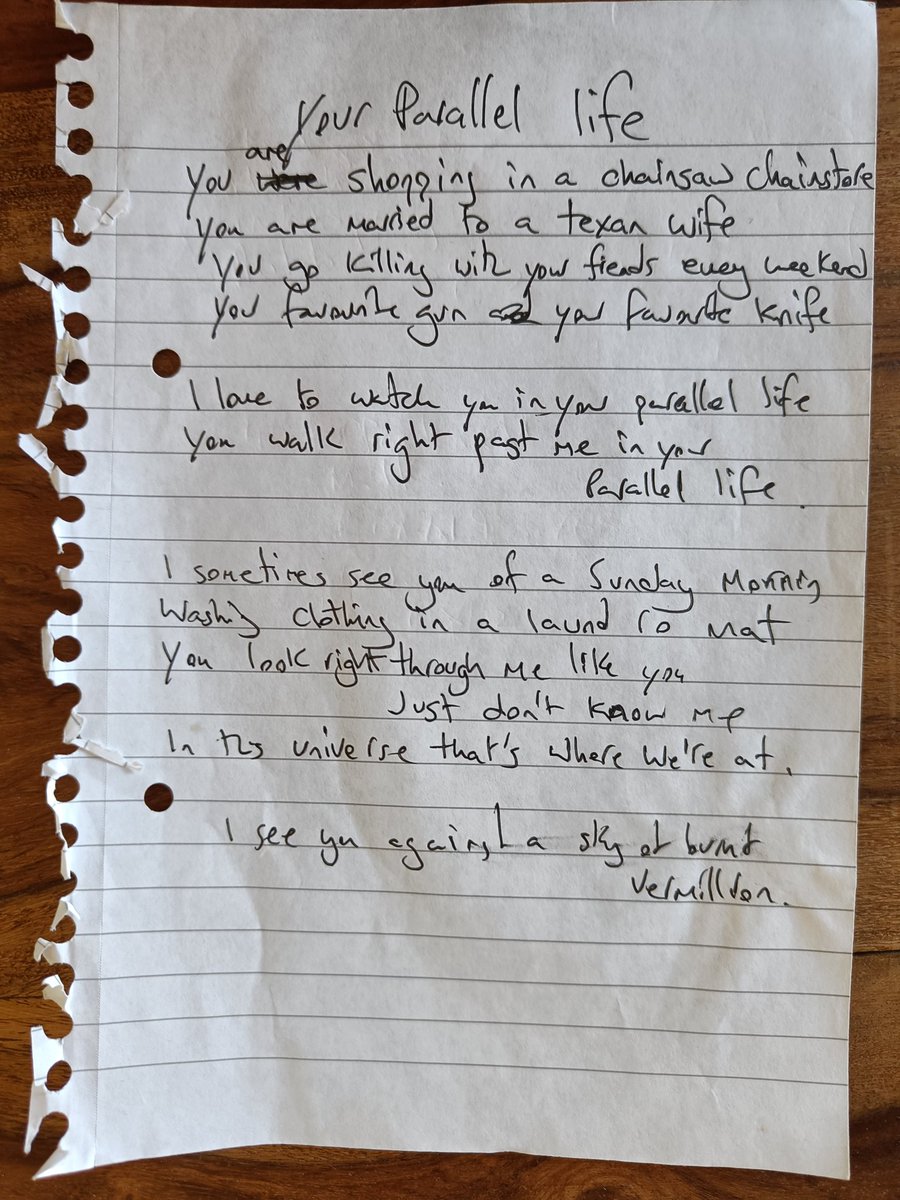 Your Parallel life
You are shopping in a chainsaw chainstore
You are married to a texan wife
You go killing with your fiends every weekend
Your favourite gun and your favorite knife
I love to watch you in your parallel life
You walk right past me in your
Parallel life.
I sometimes see you of a Sunday Morning
Washing clothing in a laund ro mat
You look right through me like you
Just don't know me
In this universe that's where we're at.
I see you against a sky of burnt
Vermillion.